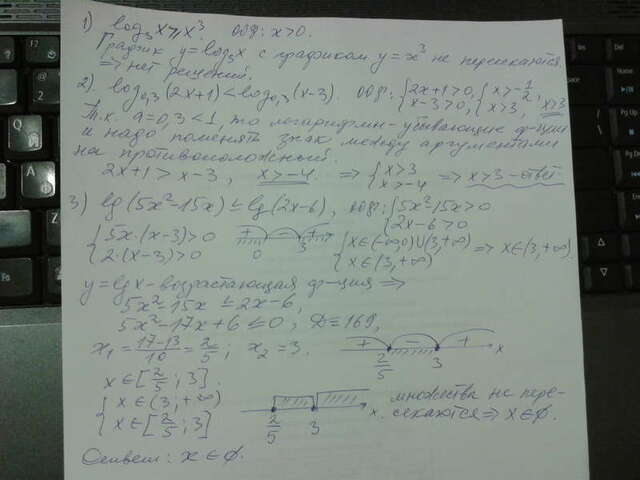 1) log₃x ⩾ x³. ОДЗ: x>0.
График y=log₃x с графиком y=x³ не пересекаются
⇒ нет решений.
2). log₀,₃(2x+1) < log₀,₃(x-3). ОДЗ: {2x+1>0, x-3>0, {x>-1/2, x>3, x>3
Т.к. a=0,3<1, то логарифмы-убывающие ф-ции
и надо поменять знак между аргументами
на противоположный.
2x+1 > x-3, x>-4. ⇒ {x>3 x>-4 ⇒ x>3-ответ
3) lg(5x²-15x) ≤ lg(2x-6), ОДЗ: {5x²-15x>0 2x-6>0
{5x·(x-3)>0 2·(x-3)>0 + - + 0 3 {x∈(-∞,0)∪(3,+∞) x∈(3,+∞) ⇒ x∈(3,+∞).
y=lgx-возрастающая ф-ция ⇒
5x²-15x ≤ 2x-6,
5x²-17x+6 ≤ 0, D=169,
x₁ = (17-13)/10 = 2/5; x₂=3. + - + 2/5 3 x
x∈[2/5; 3].
{x∈(3;+∞) x∈[2/5; 3] 2/5 3 x. множества не пере-
секаются ⇒ x∈∅.
Ответ: x∈∅.